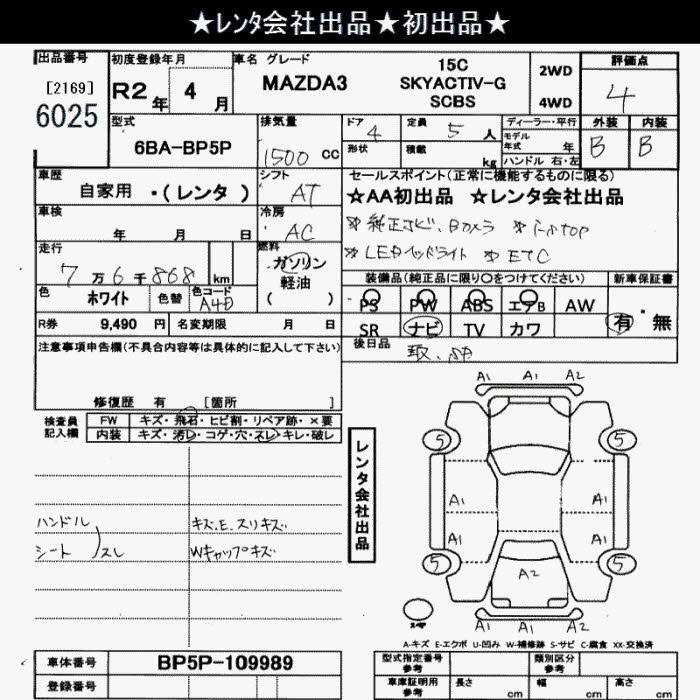 ★レンタ会社出品★初出品★
出品番号 初度登録年月 車名 グレード 評価点
[2169] 6025 R2年 4月 MAZDA3 15C SKYACTIV-G SCBS 2WD 4WD 4
型式 排気量 ドア 4 定員 5人 ディーラー・平行 外装 内装
6BA-BP5P 1500 cc 形状 積載 kg モデル年式 年 ハンドル 右・左 B B
車歴 シフト セールスポイント(正常に機能するものに限る)
自家用 ・(レンタ) AT ★AA初出品 ★レンタ会社出品
車検 年 月 日 冷房 AC ※純正ナビ、Bカメラ ※i-stop
走行 燃料 ※LEDヘッドライト ※ETC
7万6千868 km ガソリン 軽油 ( ) 装備品(純正品に限り○をつけてください) 新車保証書
色 ホワイト 色替 色コード A4D PS PW ABS エアB AW 有・無
R券 9,490 円 名変期限 月 日 SR ナビ TV カワ
注意事項申告欄(不具合内容等は具体的に記入して下さい) 後日品 取、SD
修復歴 有 [箇所
A1 A1 A2
検査員記入欄 FW キズ・飛石・ヒビ割・リペア跡・×要
内装 キズ・汚レ・コゲ・穴・スレ・キレ・破レ
5 5
レンタ会社出品
A1 A1
ハンドル キズ、E、スリキズ
シート スレ Wキャップキズ
A1 A1
5 5
A2
A1 A1 A2
A-キズ E-エクボ U-凹み W-補修跡 S-サビ C-腐食 XX-交換済
車体番号 BP5P-109989 型式指定番号 参考 類別区分 参考
登録番号 車庫証明用 参考 長さ cm 幅 cm 高さ cm